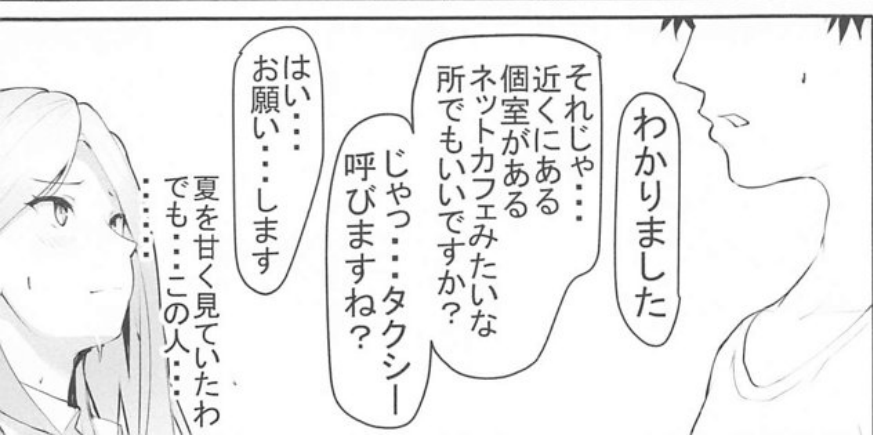 わかりました
それじゃ・・・
近くにある
個室がある
ネットカフェみたいな
所でもいいですか？
じゃっ・・・タクシー
呼びますね？
はい・・・
お願い・・・します
夏を甘く見ていたわ
でも・・・この人・・・
・・・・・・・